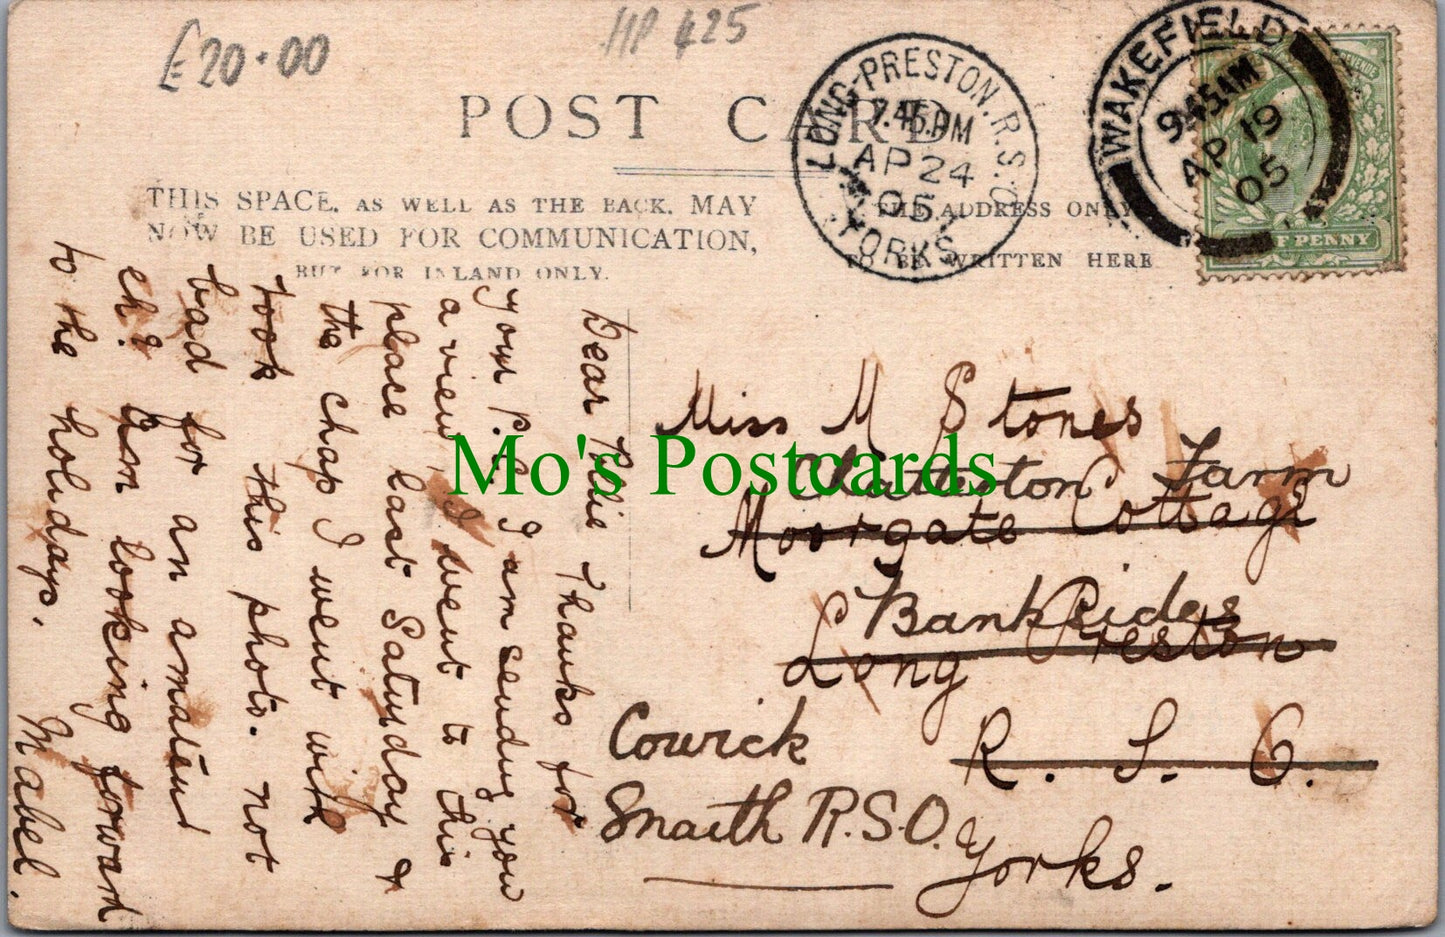 £20.00
HP 425
POST CARD
THIS SPACE, AS WELL AS THE BACK, MAY
NOW BE USED FOR COMMUNICATION,
BUT FOR INLAND ONLY.
THE ADDRESS ONLY
TO BE WRITTEN HERE
LONG-PRESTON.R.S.O.
7.45.PM
AP 24
05
YORKS
WAKEFIELD
9.45AM
AP 19
05
HALF PENNY
Dear Thanks for
your P.C. I am sending you
a view, I went to this
place last Saturday &
the chap I went with
took this photo. not
bad for an amateur
eh? Am looking forward
to the holidays.
Mabel.
Miss M Stones
Chatterton Farm
Moorgate Cottage
Bank Sides
Long Preston
Cowick
R. S. O.
Snaith R.S.O.
Yorks.
Mo's Postcards